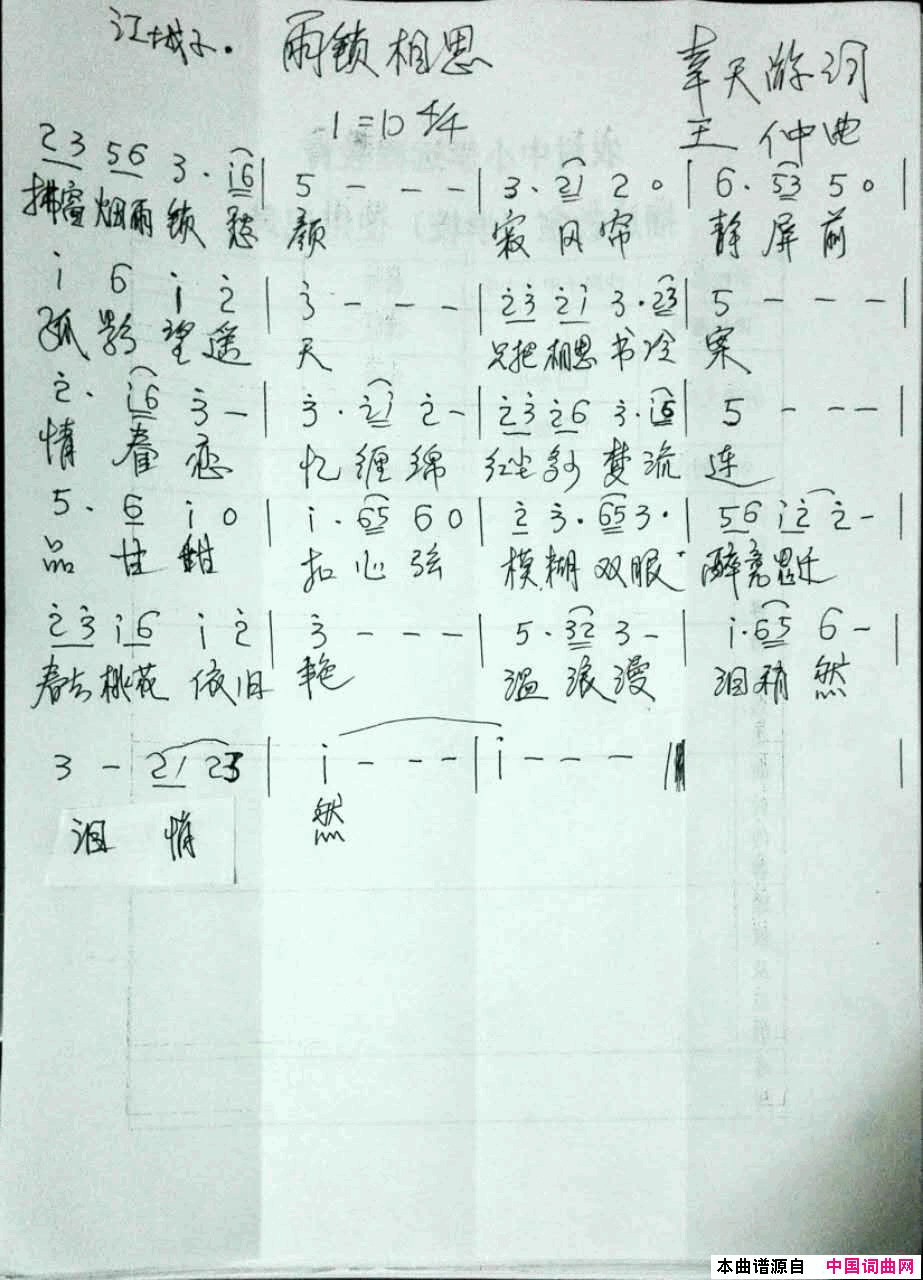 江城子. 雨锁相思
辛天游词
1=D 4/4
王 仲曲
23 56 3· i6 | 5 - - - | 3· 21 2 0 | 6· 53 5 0 |
拂窗 烟雨 锁 愁 颜 寂 风 帘 静 屏 前
i 6 i 2 | 3 - - - | 23 21 3· 23 | 5 - - - |
孤 影 望 遥 天 只把 相思 书 冷 案
2· i6 3 - | 3· 21 2 - | 23 26 3· i6 | 5 - - - |
情 眷 恋 忆 缠 绵 红尘 梦 流 连
5· 6 i 0 | i· 65 6 0 | 2 3· 65 3· | 56 i2 2 - |
品 甘 甜 扣 心 弦 模 糊 双 眼 醉 思 迁
23 i6 i 2 | 3 - - - | 5· 32 3 - | i· 65 6 - |
春去 桃花 依 旧 艳 温 浪 漫 泪 稍 然
3 - 21 23 | i - - - | i - - - ‖
泪 悄 然
本曲谱源自 中国词曲网